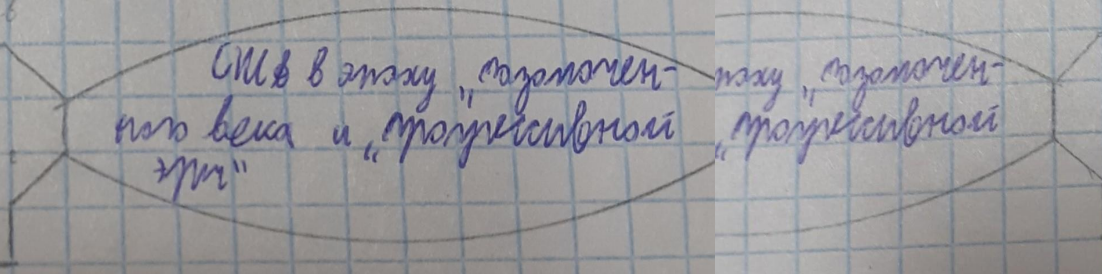 США в эпоху „позолочен-
ного века и „прогрессивной
эры"
эпоху „позолочен-
„прогрессивной